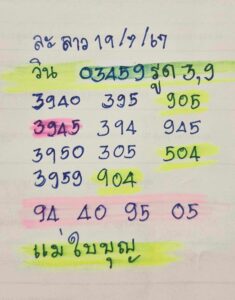 ละ ลาว 19/7/67
วิน 03459 รูด 3,9
3940 395 905
3945 394 945
3950 305 504
3959 904
94 40 95 05
แม่ใบบุญ